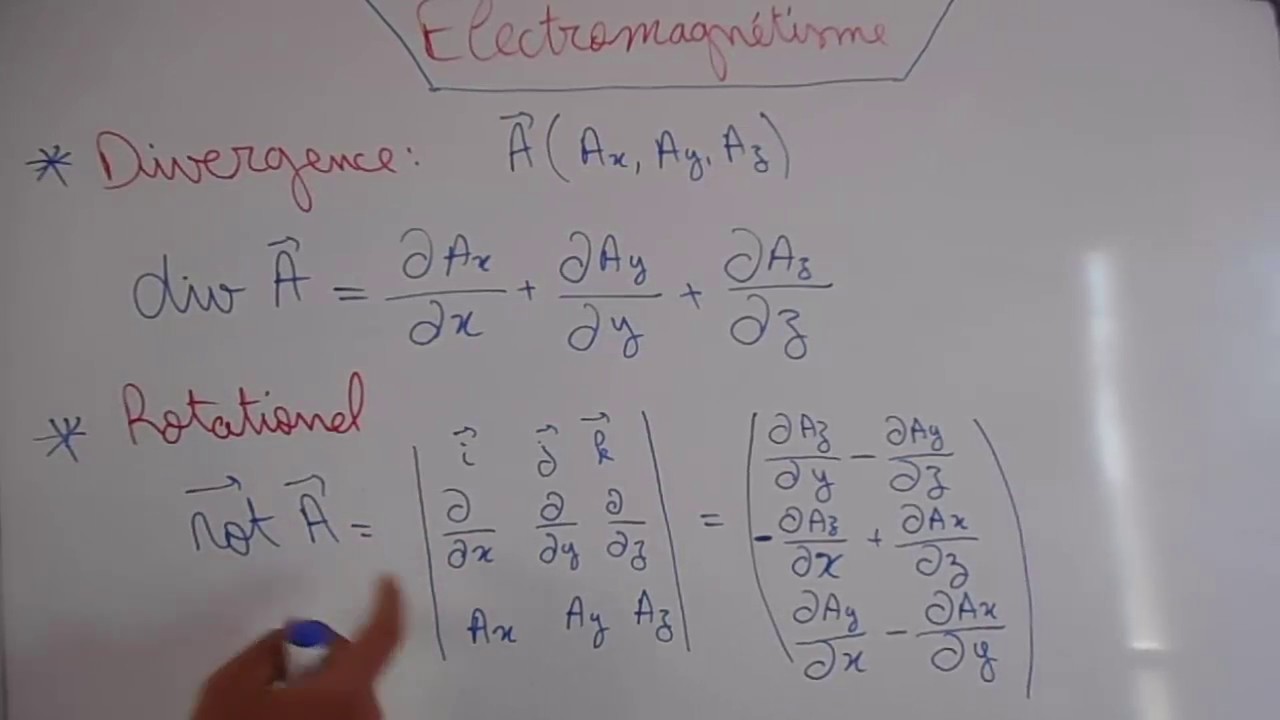 Electromagnétisme
* Divergence: A⃗(Ax, Ay, Az)
div A⃗ = ∂Ax/∂x + ∂Ay/∂y + ∂Az/∂z
* Rotationel
rot⃗ A⃗ = | i⃗ j⃗ k⃗ ; ∂/∂x ∂/∂y ∂/∂z ; Ax Ay Az | = ( ∂Az/∂y − ∂Ay/∂z ; −∂Az/∂x + ∂Ax/∂z ; ∂Ay/∂x − ∂Ax/∂y )